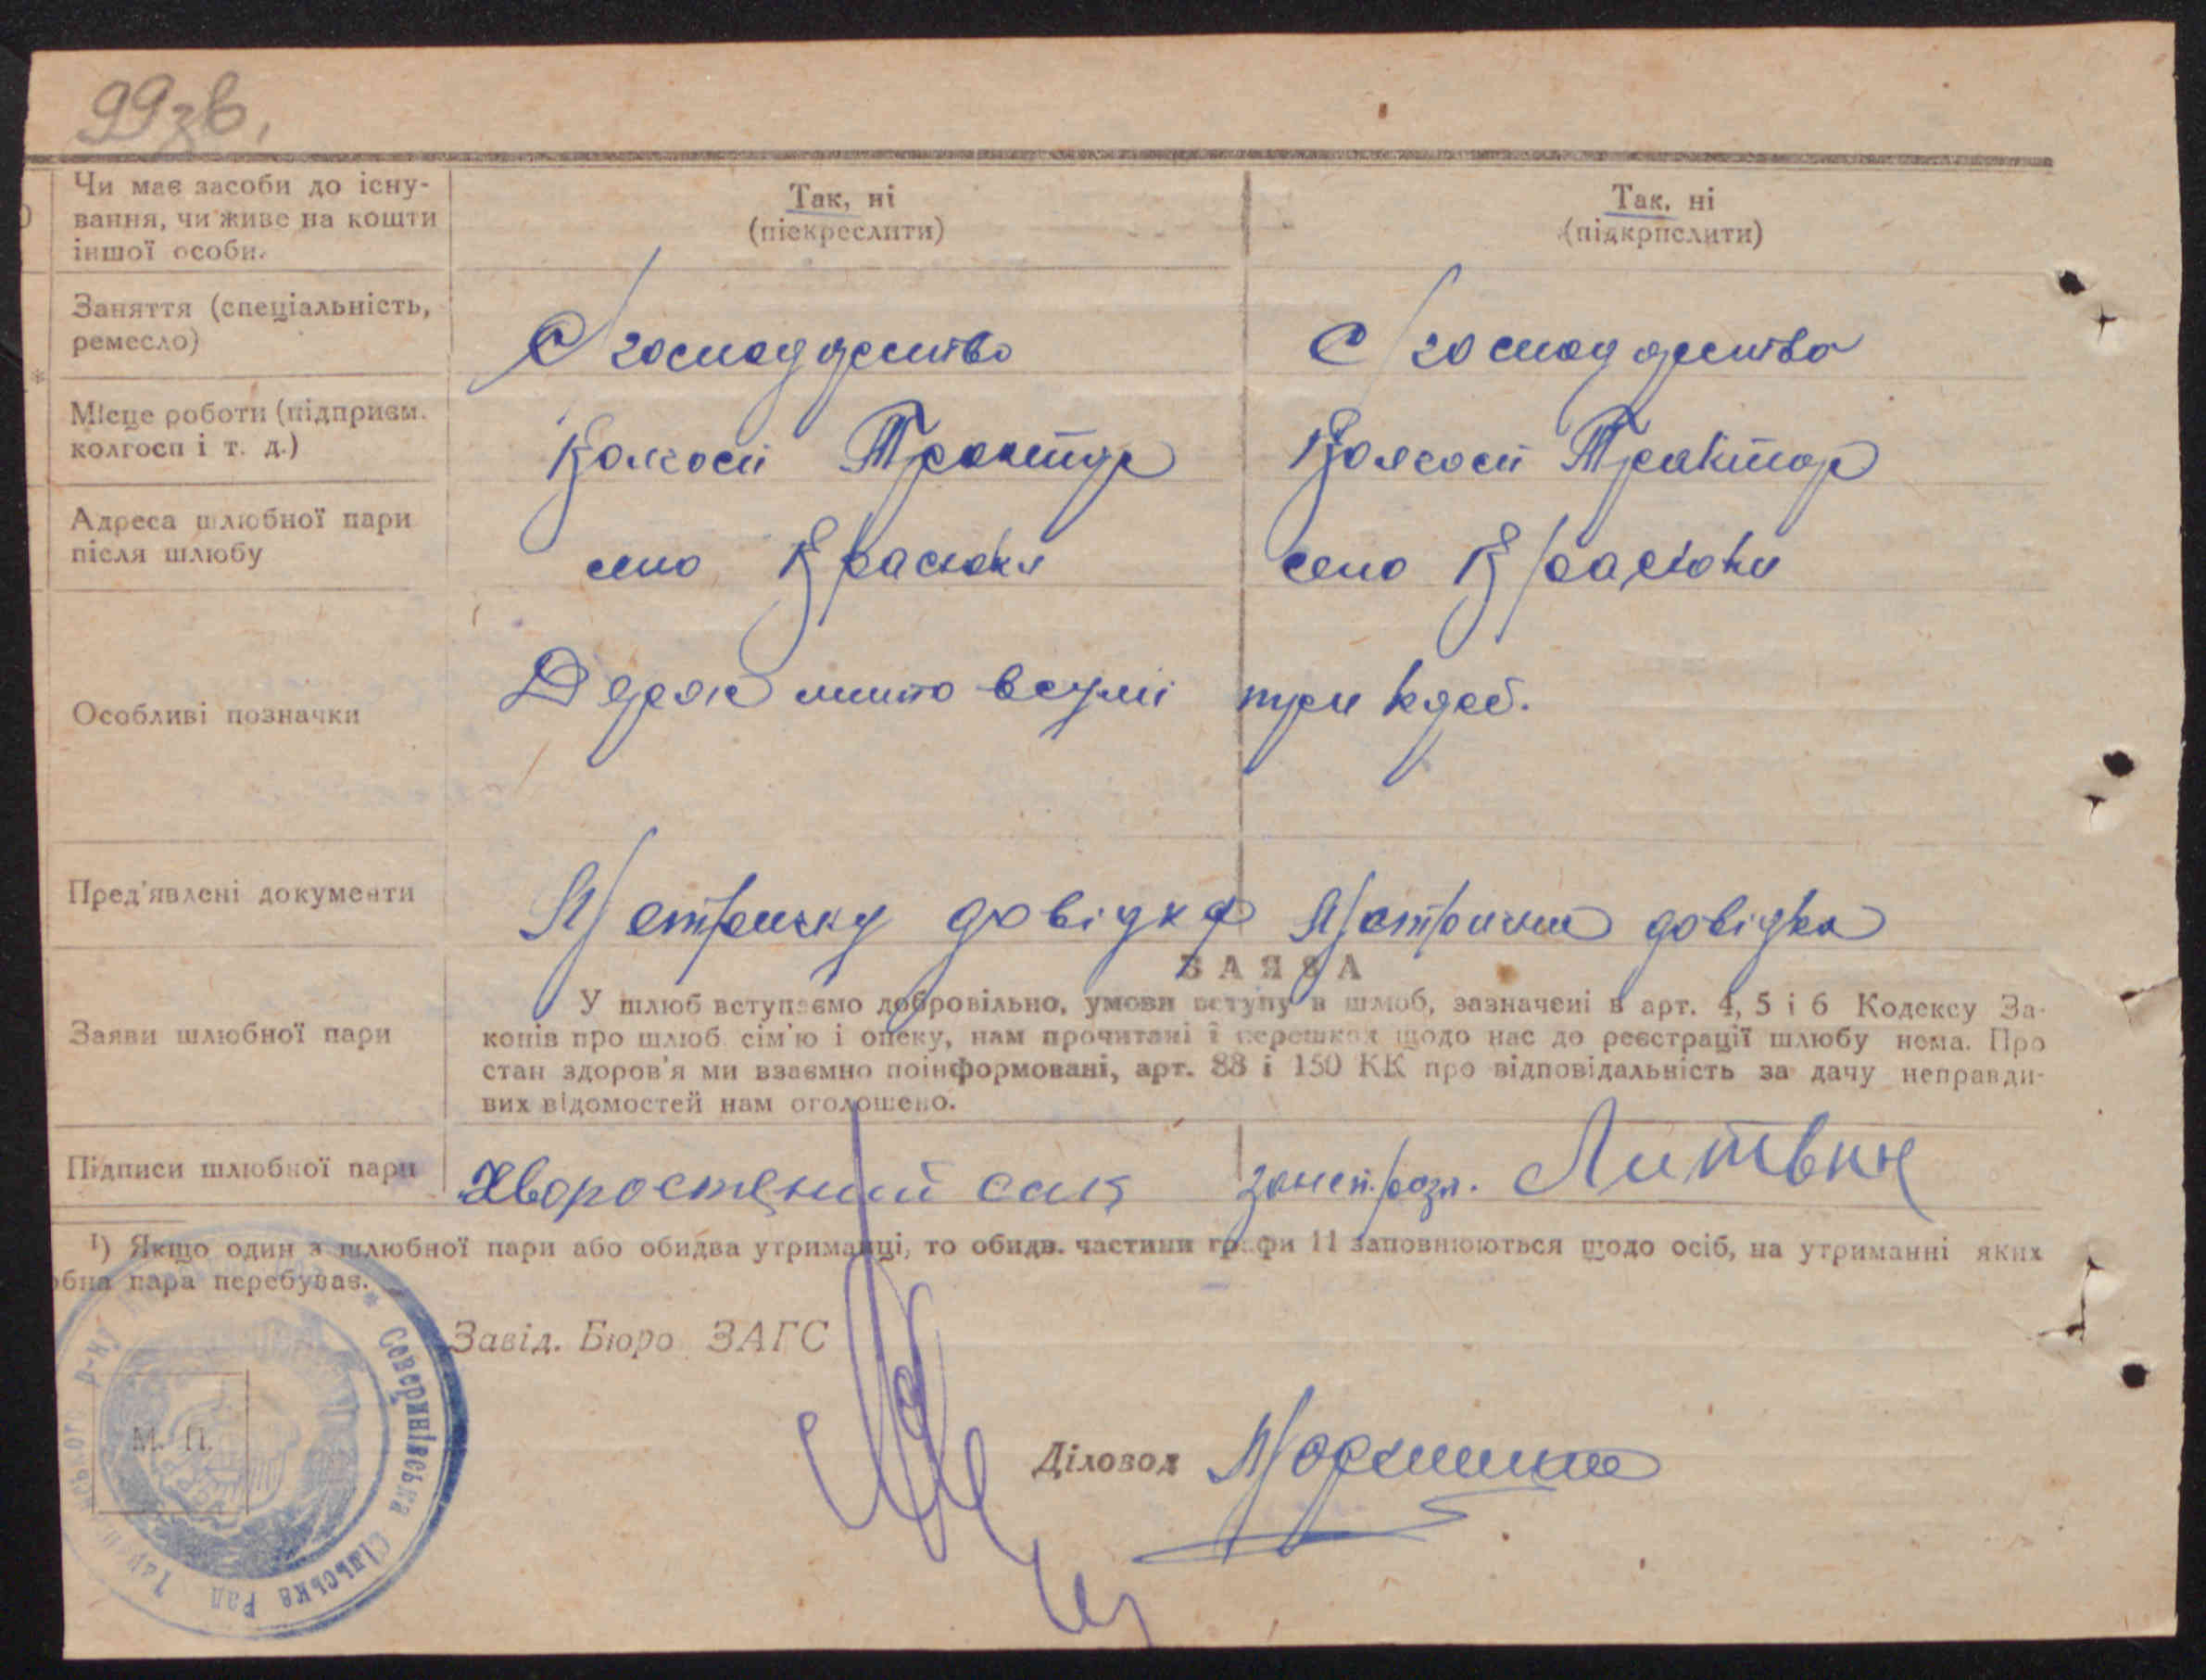 99зв.
Чи має засоби до існу-
вання, чи живе на кошти
іншої особи.
Так, ні
(піекреслити)
Так, ні
(підкрпслити)
Заняття (спеціальність,
ремесло)
С/господарство
С/господарство
Місце роботи (підприєм.
колгосп і т. д.)
Колгосп Трактур
Колгосп Трактор
Адреса шлюбної пари
після шлюбу
село Красюки
село Красюки
Особливі позначки
Держ мито в сумі три крб.
Пред'явлені документи
Метричку довідка
Метрична довідка
ЗАЯВА
Заяви шлюбної пари
У шлюб вступаємо добровільно, умови вступу в шлюб, зазначені в арт. 4, 5 і 6 Кодексу За-
конів про шлюб сім'ю і опеку, нам прочитані і перешкод щодо нас до реєстрації шлюбу нема. Про
стан здоров'я ми взаємно поінформовані, арт. 88 і 150 КК про відповідальність за дачу неправди-
вих відомостей нам оголошено.
Підписи шлюбної пари
Литвин
1) Якщо один з шлюбної пари або обидва утриманці, то обидв. частини графи 11 заповнюються щодо осіб, на утриманні яких
обна пара перебуває.
Завід. Бюро ЗАГС
М. П.
Діловод
Северинівська Сільська Рад
р-ну